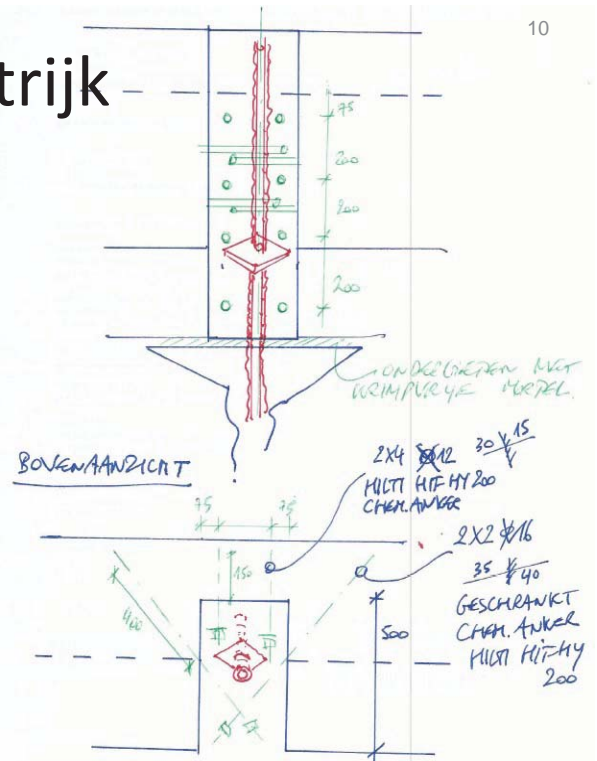 10
trijk
75
200
200
200
ONDERGIETEN MET
KRIMPVRIJE MORTEL.
BOVENAANZICHT
2X4 Ø12 30 15
HILTI HIT HY 200
CHEM. ANKER
75 75
2X2 Ø16
35 40
GESCHRANKT
CHEM. ANKER
HILTI HIT-HY
200
150
400
500